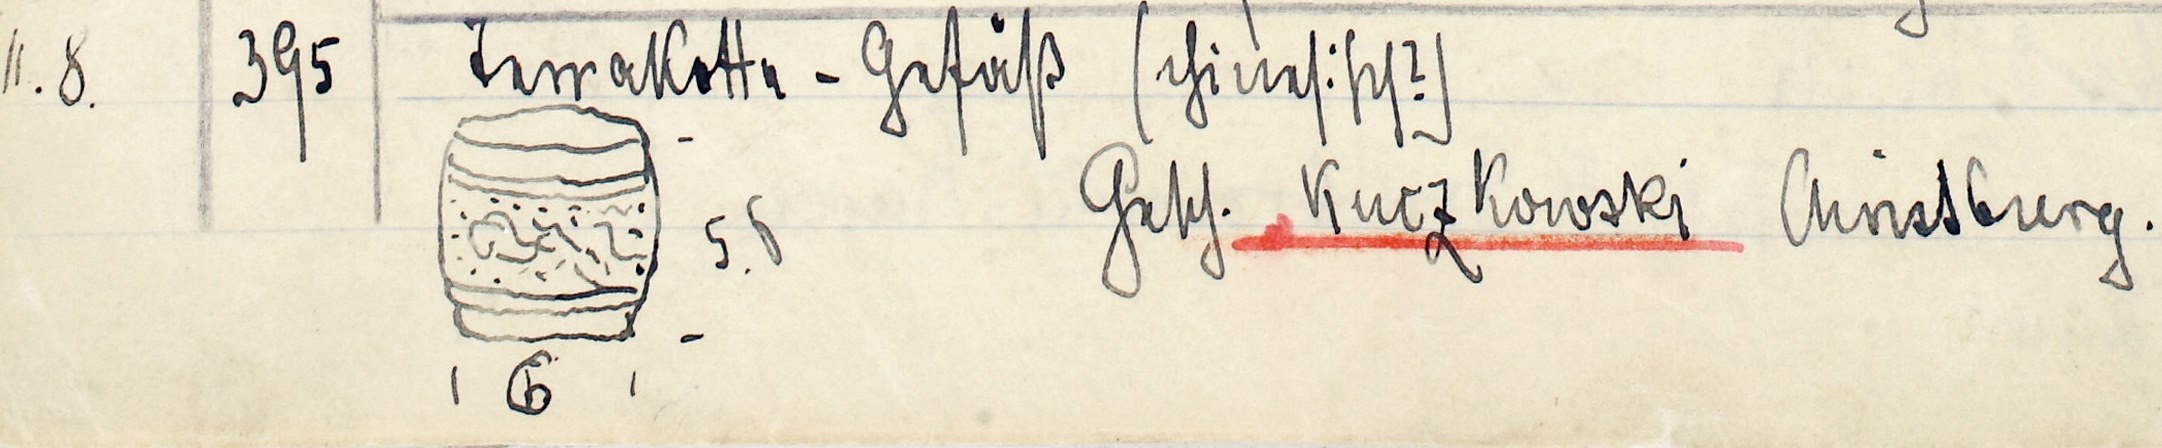 11.8. 395 Terrakotta-Gefäß (chinesisch?)
Gesch. Kuczkowski Christburg.
5.6
6